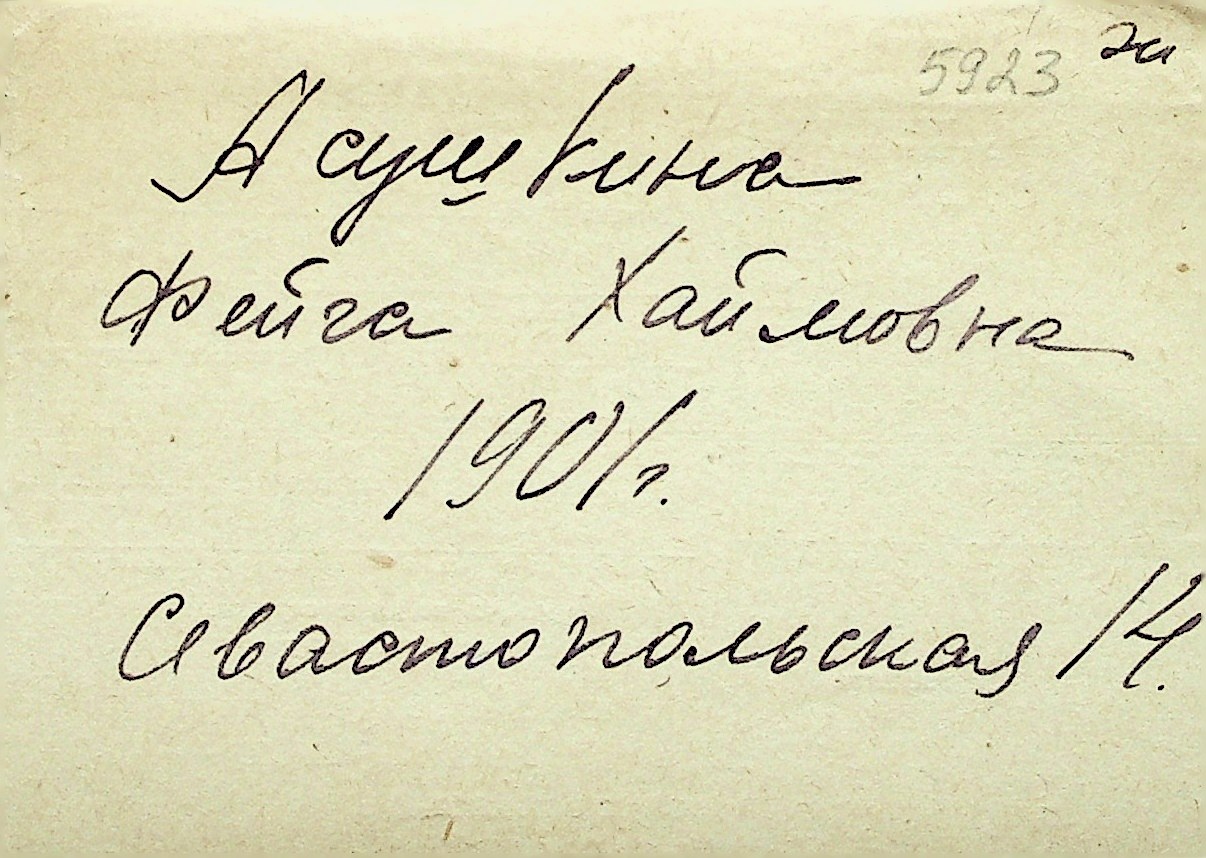 5923
Асушкина
Фейга Хаймовна
1901г.
Севастопольская 14.